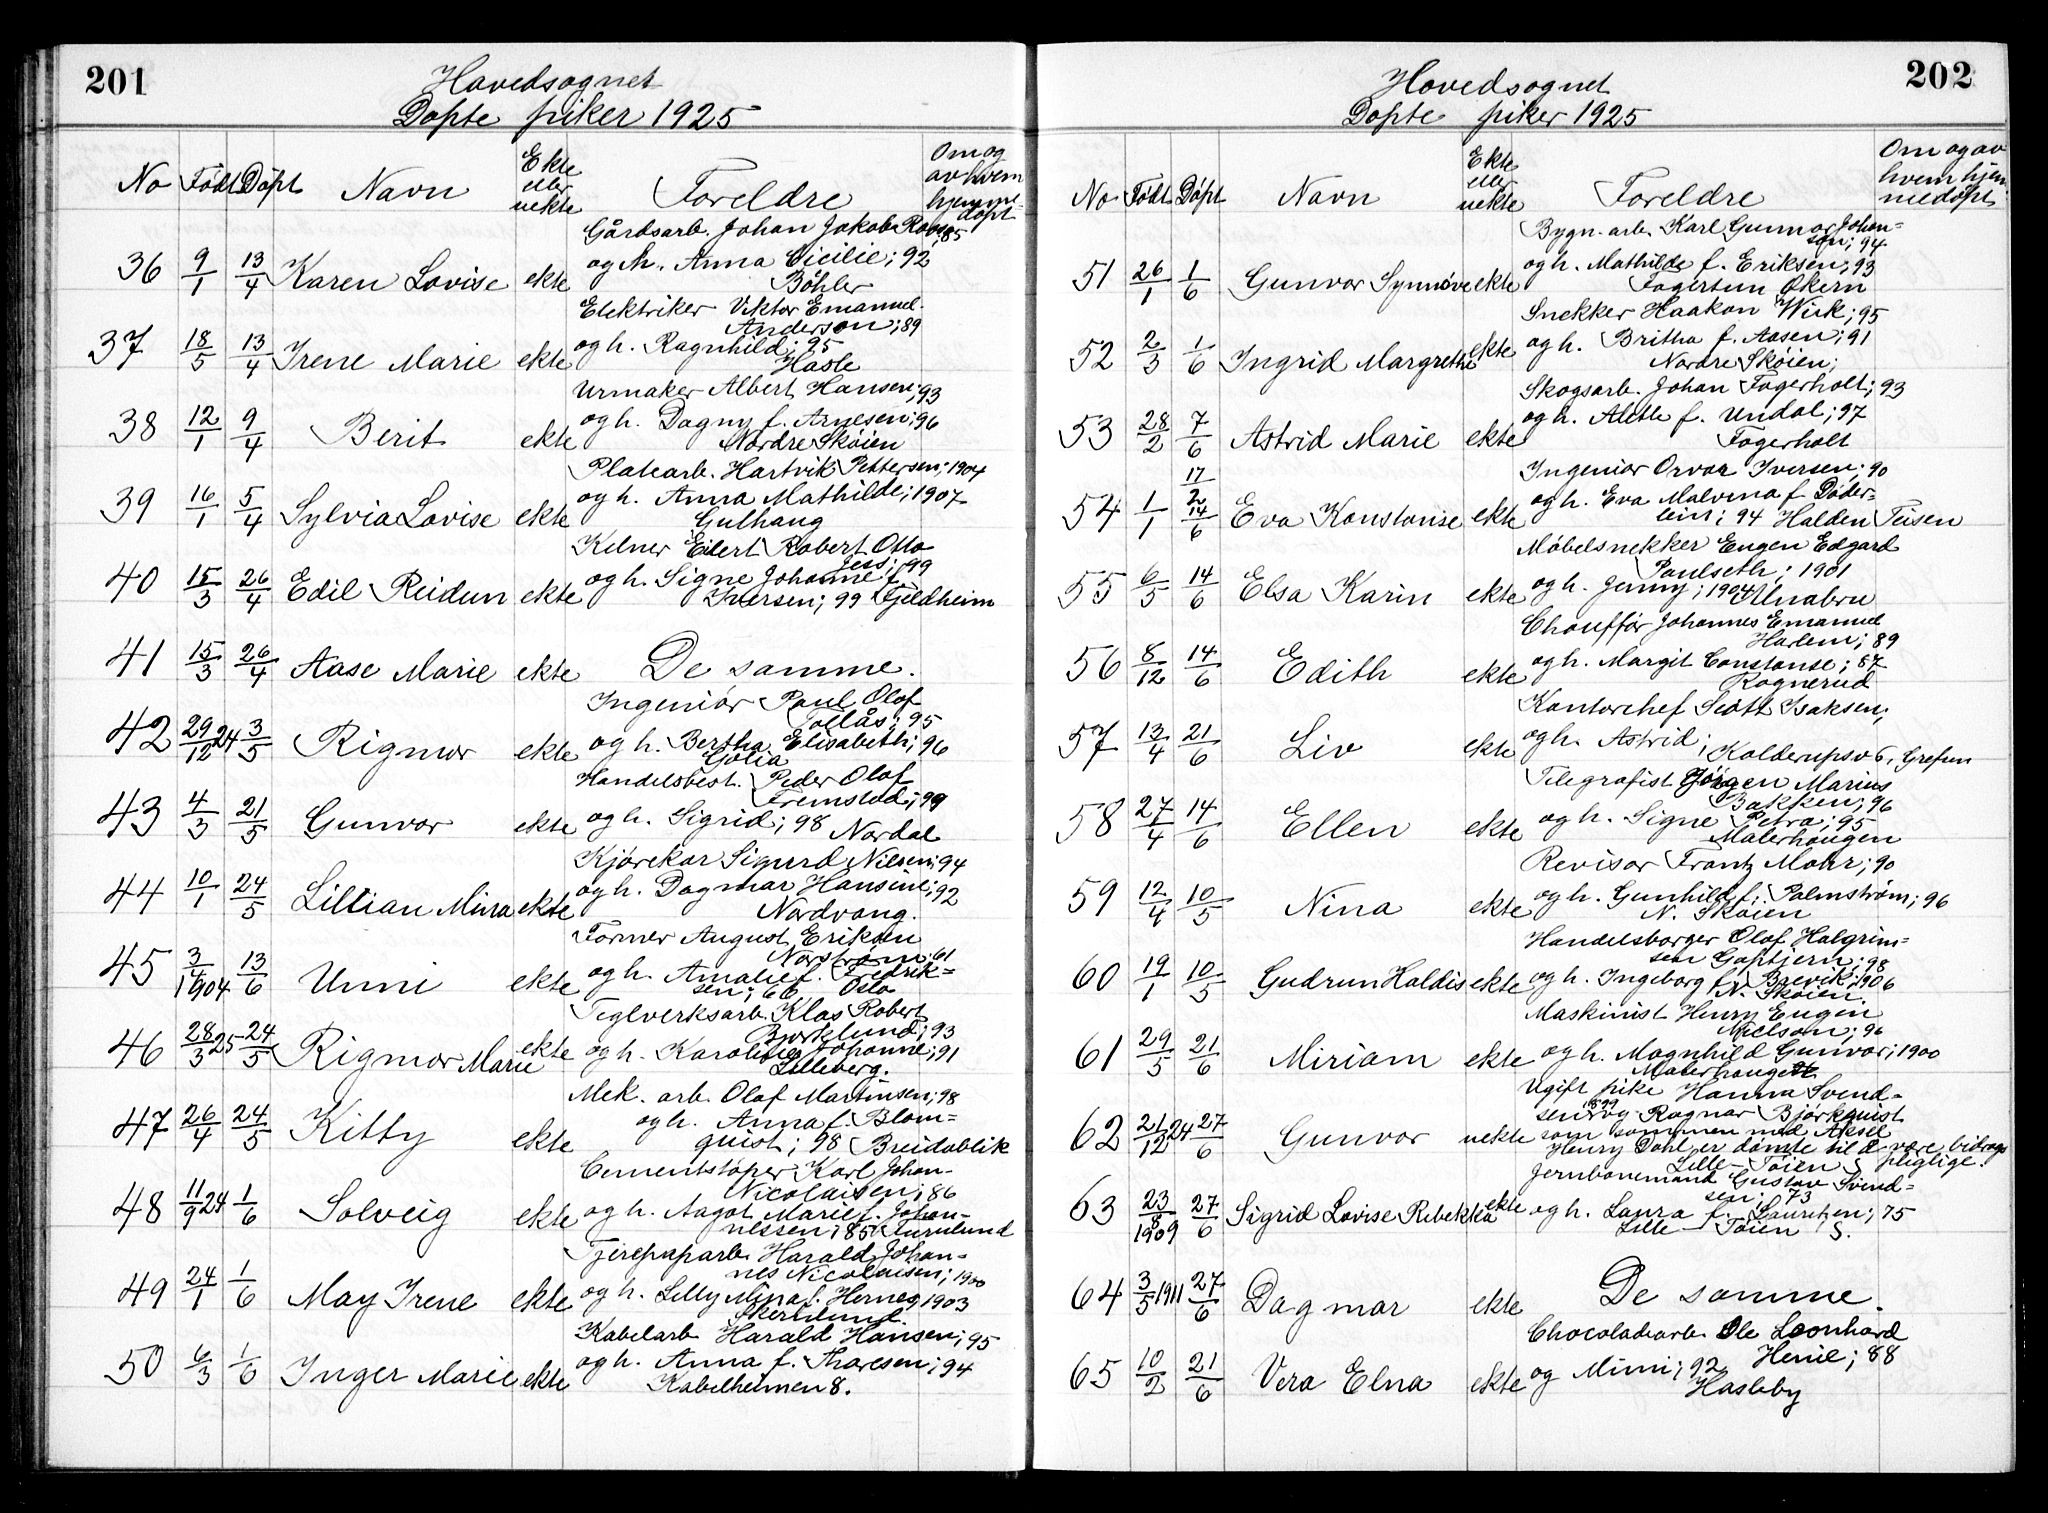 201
Hovedsognet
Døpte piker 1925
No Født Døpt Navn Ekte eller uekte Foreldre Om og av hvem hjemmedøpt
Gårdsarb. Johan Jakob 85
36 9/1 13/4 Karen Lovise ekte og h. Anna Cicilie; 92
Böhler
Elektriker Viktor Emanuel
Anderson; 89
37 18/5 13/4 Irene Marie ekte og h. Ragnhild; 95
Hasle
Urmaker Albert Hansen; 93
38 12/1 9/4 Berit ekte og h. Dagny f. Arnesen; 96
Nordre Skøien
Platearb. Hartvik Pettersen; 1904
39 16/1 5/4 Sylvia Lovise ekte og h. Anna Mathilde; 1907
Gulhaug
Kelner Eilert Robert Otto
Jess; 99
40 15/3 26/4 Edil Reidun ekte og h. Signe Johanne f.
Iversen; 99 Fjeldheim
41 15/3 26/4 Aase Marie ekte De samme.
Ingeniör Paul Olof
Tollås; 95
42 29/12 24 3/5 Rigmor ekte og h. Bertha Elisabeth; 96
Golia
Handelsbest. Peder Olaf
Fremstad; 99
43 4/3 21/5 Gunvor ekte og h. Sigrid; 98 Nordal
Kjørekar Sigurd Nilsen; 94
44 10/1 24/5 Lillian Mina ekte og h. Dagmar Hansine; 92
Nordvang.
Former August Eriksen
Norstrøm 61
45 3/14 1904 13/6 Unni ekte og h. Amalie f. Fredrik-
sen; 66 Oslo
Teglverksarb. Klas Robert
Bjørklund; 93
46 28/3 25 24/5 Rigmor Marie ekte og h. Karoline Johanne; 91
Lilleberg.
Mek. arb. Olaf Martinsen; 98
47 26/4 24/5 Kitty ekte og h. Anna f. Blom-
quist; 98 Breidablik
Cementstøper Karl Johan
Nicolaisen; 86
48 11/9 24 1/6 Solveig ekte og h. Aagot Marie f. Johan-
nessen; 85 Furulund
Tjærepaparb. Harald Johan-
nes Nicolaisen; 1900
49 24/1 1/6 May Irene ekte og h. Lilly Mina f. Hernes 1903
Kabelarb Harald Hansen; 95
50 6/3 1/6 Inger Marie ekte og h. Anna f. Thoresen; 94
Kabelheimen 8.
202
Hovedsognet
Døpte piker 1925
No Født Døpt Navn Ekte eller uekte Foreldre Om og av hvem hjemmedøpt
Bygn. arb. Karl Gunnar Johan-
sen; 94
51 26/1 1/6 Gunvor Synnøve ekte og h. Mathilde f. Eriksen; 93
Fagertun Økern
Snekker Haakon Wiik; 95
52 2/3 1/6 Ingrid Margrethe ekte og h. Britha f. Aasen; 91
Nordre Skøien;
Skogsarb. Johan Fagerholt; 93
53 28/2 7/6 Astrid Marie ekte og h. Alette f. Undal; 97
Fagerholt
Ingeniør Orvar Iversen; 90
54 1/1 17/2 14/6 Eva Konstanse ekte og h. Eva Malvena f. Døder-
lein; 94 Halden Teisen
Møbelsnekker Eugen Edgard
Paulseth; 1901
55 6/5 14/6 Elsa Karin ekte og h. Jenny; 1904 Alnabru
Chouffør Johannes Emanuel
Harlem; 89
56 8/12 14/6 Edith ekte og h. Margit Constanse; 87
Rognerud
Kontorchef Scott Isaksen;
57 13/4 21/6 Liv ekte og h. Astrid; Kolderupsv 6, Grefsen
Telegrafist Jörgen Marius
Bakken; 96
58 27/4 14/6 Ellen ekte og h. Signe Petra; 95
Malerhaugen
Revisor Frantz Mohr; 90
59 12/4 10/5 Nina ekte og h. Gunhild f. Palmstrøm; 96
N. Skøien
Handelsborger Olaf Halgrim-
sen Gaptjern; 98
60 19/1 10/5 Gudrun Haldis ekte og h. Ingeborg f. Brevik; 1906
N. Skøien.
Maskinist Henry Eugen
Nielson; 96
61 29/5 21/6 Miriam ekte og h. Magnhild Gunvor; 1900
Malerhaugen
Ugift pike Hanna Svend-
sen 1899 og Ragnar Bjørkquist
62 21/12 24 27/6 Gunvor uekte som sammen med Aksel
Henry Dahl er dømte til å være bidrags
Lille-Tøien S pligtige.
Jernbanemand Gustav Svend-
sen; 73
63 23/8 1909 27/6 Sigrid Lovise Rebekka ekte og h. Laura f. Lauritsen; 75
Lille Tøien S.
64 3/5 1911 27/6 Dagmar ekte De samme.
Chocoladearb. Ole Leonhard
Henie; 88
65 10/2 21/6 Vera Elna ekte og Mimi; 92
Hasleby